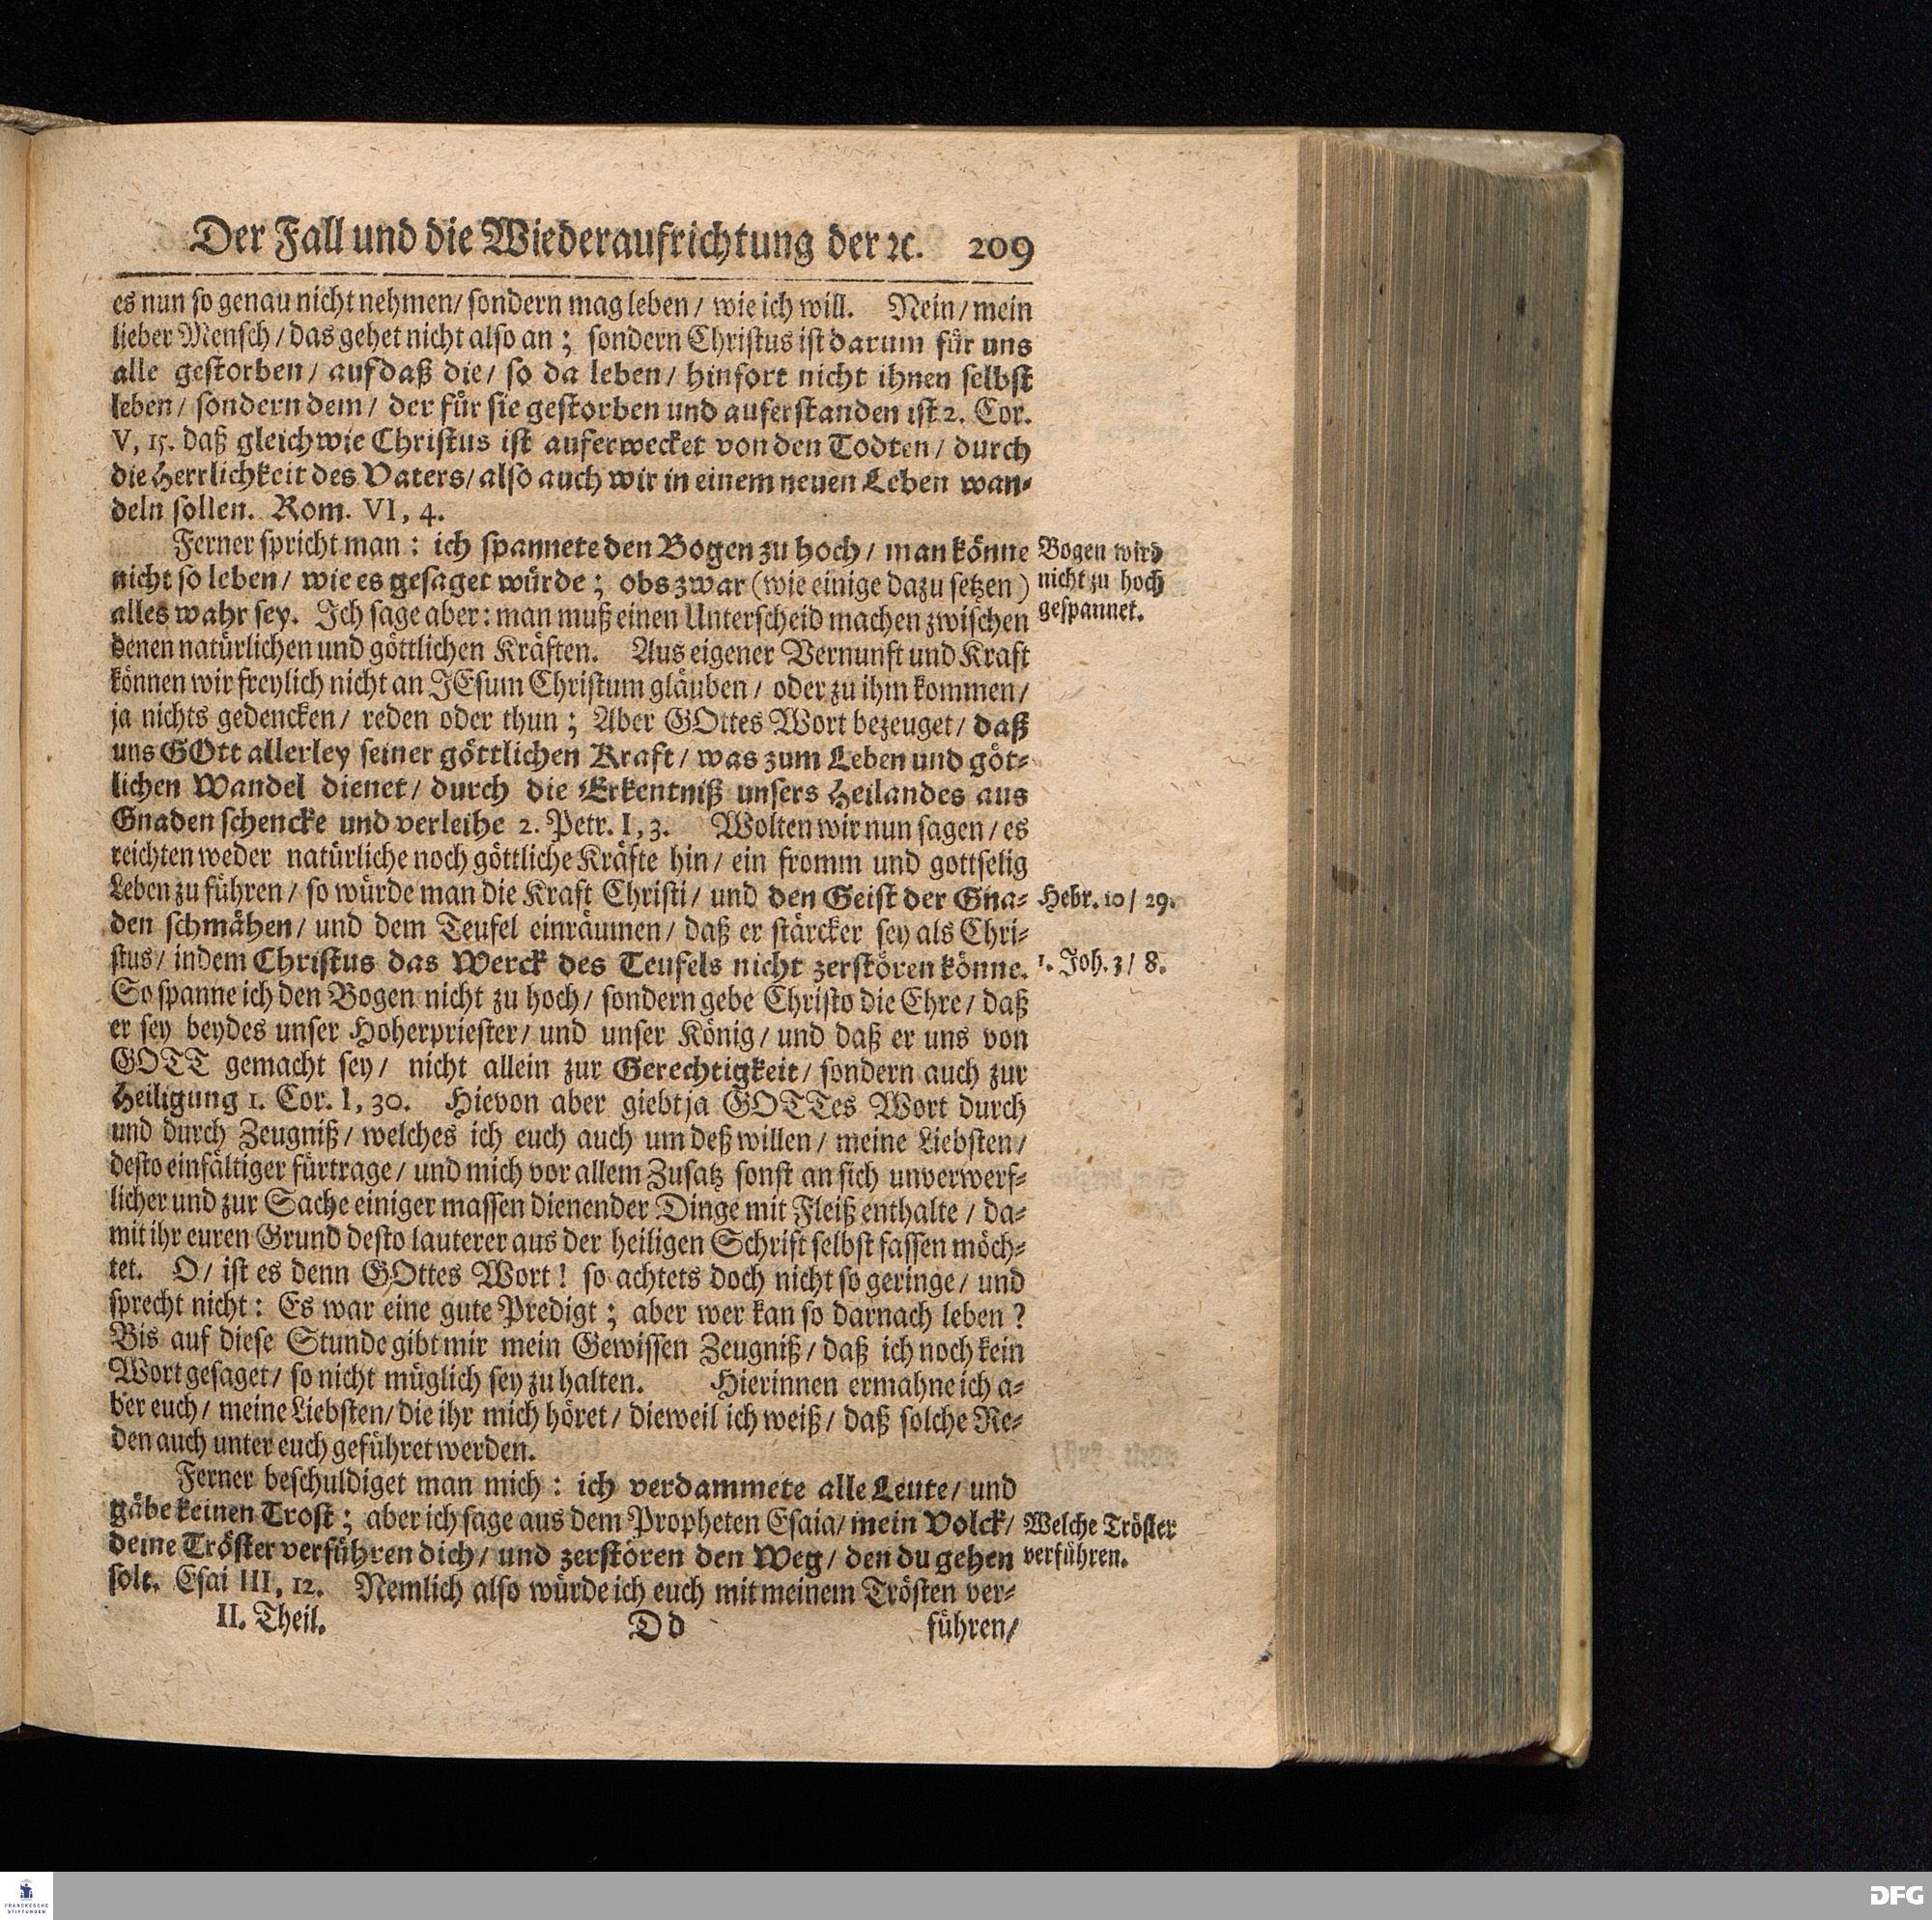 Der Fall und die Wiederaufrichtung der ꝛc. 209
es nun so genau nicht nehmen/ sondern mag leben/ wie ich will. Nein/ mein
lieber Mensch/ das gehet nicht also an; sondern Christus ist darum für uns
alle gestorben/ auf daß die/ so da leben/ hinfort nicht ihnen selbst
leben/ sondern dem/ der für sie gestorben und auferstanden ist 2. Cor.
V, 15. daß gleichwie Christus ist auferwecket von den Todten/ durch
die Herrlichkeit des Vaters/ also auch wir in einem neuen Leben wan-
deln sollen. Rom. VI, 4.
Ferner spricht man: ich spannete den Bogen zu hoch/ man könne
Bogen wird
nicht so leben/ wie es gesaget würde; obs zwar (wie einige dazu setzen)
nicht zu hoch
alles wahr sey. Ich sage aber: man muß einen Unterscheid machen zwischen
gespannet.
denen natürlichen und göttlichen Kräften. Aus eigener Vernunft und Kraft
können wir freylich nicht an JEsum Christum gläuben/ oder zu ihm kommen/
ja nichts gedencken/ reden oder thun; Aber GOttes Wort bezeuget/ daß
uns GOtt allerley seiner göttlichen Kraft/ was zum Leben und göt-
lichen Wandel dienet/ durch die Erkentniß unsers Heilandes aus
Gnaden schencke und verleihe 2. Petr. I, 3. Wolten wir nun sagen/ es
reichten weder natürliche noch göttliche Kräfte hin/ ein fromm und gottselig
Leben zu führen/ so würde man die Kraft Christi/ und den Geist der Gna-
Hebr. 10/ 29.
den schmähen/ und dem Teufel einräumen/ daß er stärcker sey als Chri-
stus/ indem Christus das Werck des Teufels nicht zerstören könne.
1. Joh. 3/ 8.
So spanne ich den Bogen nicht zu hoch/ sondern gebe Christo die Ehre/ daß
er sey beydes unser Hoherpriester/ und unser König/ und daß er uns von
GOTT gemacht sey/ nicht allein zur Gerechtigkeit/ sondern auch zur
Heiligung 1. Cor. I, 30. Hievon aber giebt ja GOTTes Wort durch
und durch Zeugniß/ welches ich euch auch um deß willen/ meine Liebsten/
desto einfältiger fürtrage/ und mich vor allem Zusatz sonst an sich unverwerf-
licher und zur Sache einiger massen dienender Dinge mit Fleiß enthalte/ da-
mit ihr euren Grund desto lauterer aus der heiligen Schrift selbst fassen möch-
tet. O/ ist es denn GOttes Wort! so achtets doch nicht so geringe/ und
sprecht nicht: Es war eine gute Predigt; aber wer kan so darnach leben?
Bis auf diese Stunde gibt mir mein Gewissen Zeugniß/ daß ich noch kein
Wort gesaget/ so nicht müglich sey zu halten. Hierinnen ermahne ich a-
ber euch/ meine Liebsten/ die ihr mich höret/ dieweil ich weiß/ daß solche Re-
den auch unter euch geführet werden.
Ferner beschuldiget man mich: ich verdammete alle Leute/ und
gäbe keinen Trost; aber ich sage aus dem Propheten Esaia/ mein Volck/
Welche Tröster
deine Tröster verführen dich/ und zerstören den Weg/ den du gehen
verführen.
solt. Esai III, 12. Nemlich also würde ich euch mit meinem Trösten ver-
II. Theil. Dd führen/
FRANCKESCHE
STIFTUNGEN
DFG